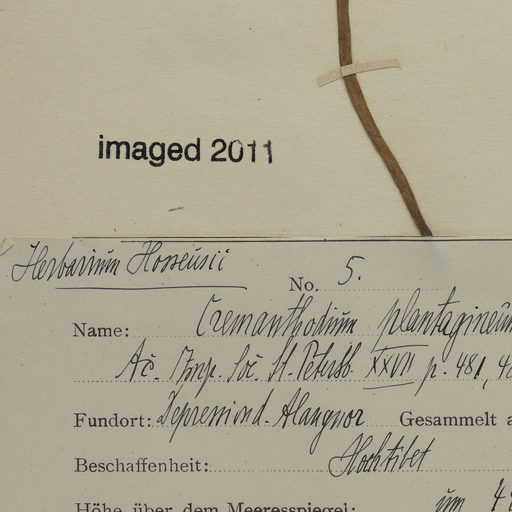 imaged 2011
Herbarium Hosseusii
No. 5.
Name: Cremanthodium plantagineum
Ac. Imp. Sc. St. Petersb. XXVII p. 481, 48
Fundort: Depression d. Alangnor Gesammelt a
Beschaffenheit: Hochtibet
Höhe über dem Meeresspiegel: um 4